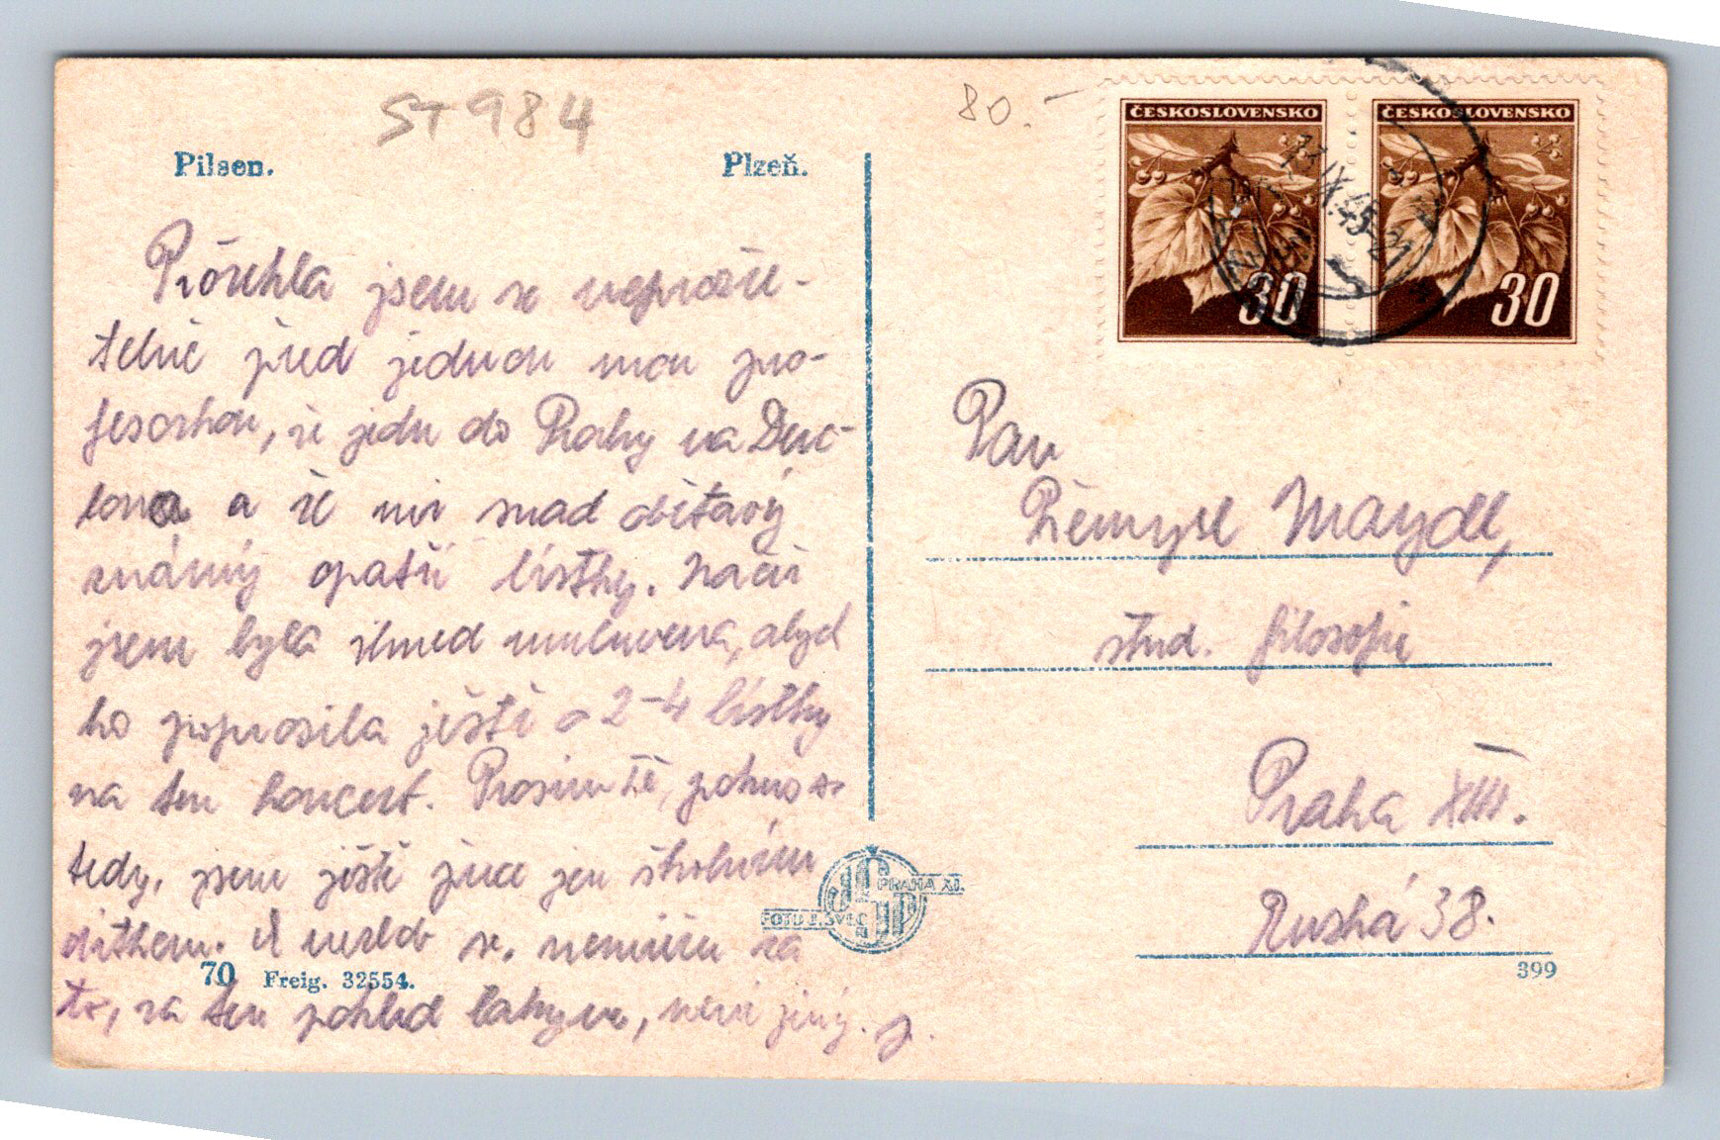 ST 984
80.-
Pilsen.
Plzeň.
ČESKOSLOVENSKO
30
ČESKOSLOVENSKO
30
IX.45-21
Prořekla jsem se neprozře-
telně před jednou mou pro-
fesorkou, že jedu do Prahy na
a že mi snad obětavý
známý opatří lístky. Načež
jsem byla ihned umluvena, abych
ho poprosila ještě o 2-4 lístky
na ten koncert. Prosím Tě, pokus se
tedy, jsem ještě jen školním
dítkem. A nezlob se, nemůžu za
to, za ten pohled taky ne, není jiný. J.
Pan
Přemysl Maydl,
stud. filosofie
Praha XIII.
Ruská 38.
FOTO J. ŠVEC
PRAHA XI.
70 Freig. 32554.
399